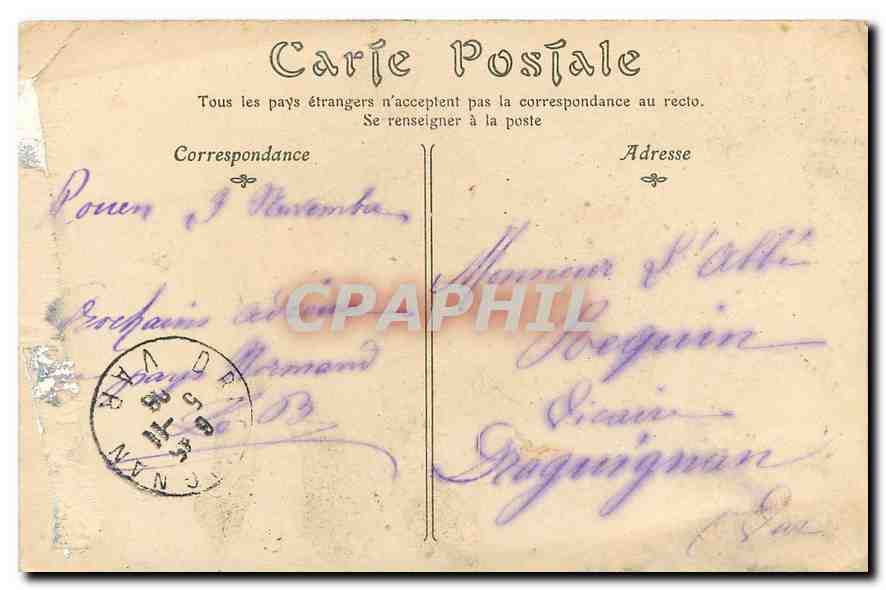 Carte Postale
Tous les pays étrangers n'acceptent pas la correspondance au recto.
Se renseigner à la poste
Correspondance
Adresse
Rouen 9 Novembre
Prochains adieux
au pays Normand
B
Monsieur L'Abbé
Reguin
Vicaire
Draguignan
Var
CPAPHIL
DRAGUIGNAN
VAR